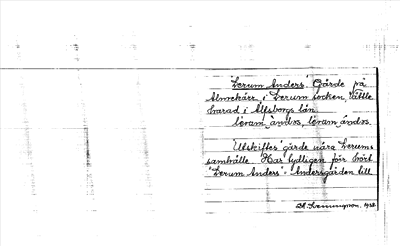 Lerum Anders Gärde på
Almekärr i Lerum socken, Vättle
härad i Älfsborgs län.
leram ándʂ, leram ándʂ.
Utskiftes gärde nära Lerums
samhälle. Har tydligen förr hört
"Lerum Anders" = Andersgården till.
1928